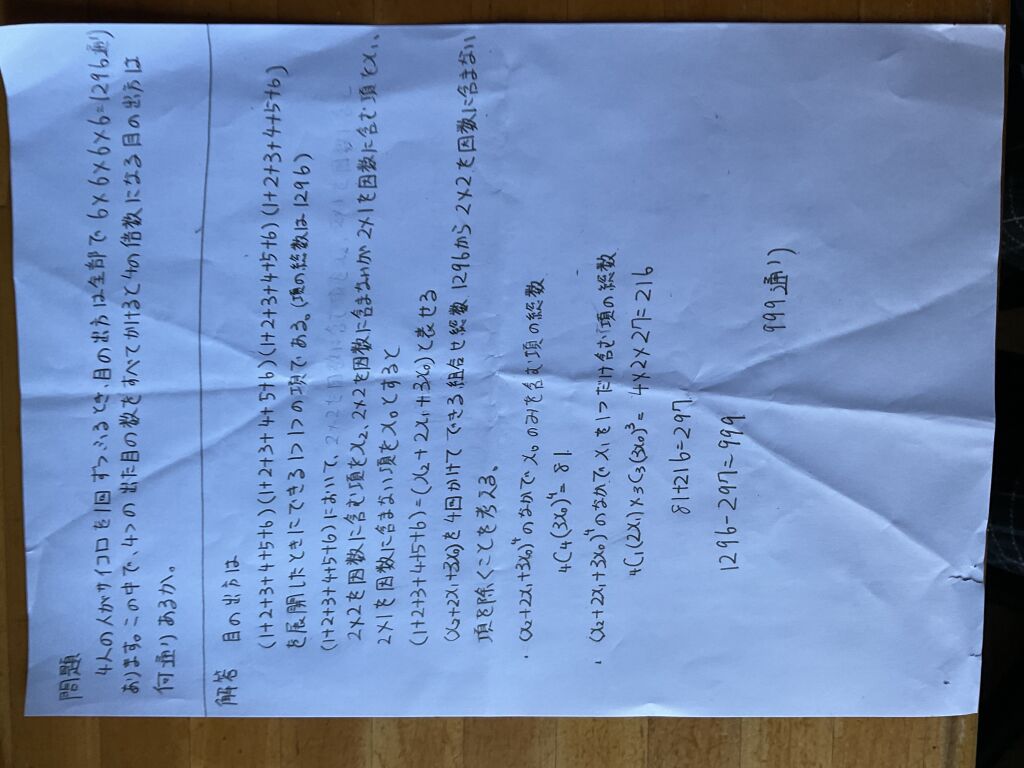 問題
4人の人がサイコロを1回ずつふるとき、目の出方は全部で6×6×6×6=1296通り
あります。この中で、4つの出た目の数をすべてかけると4の倍数になる目の出方は
何通りあるか。
解答 目の出方は
(1+2+3+4+5+6)(1+2+3+4+5+6)(1+2+3+4+5+6)(1+2+3+4+5+6)
を展開したときにできる1つ1つの項である。(項の総数は1296)
(1+2+3+4+5+6)において、
2×2を因数に含む項をx₂、2×2を因数に含まないが2×1を因数に含む項をx₁、
2×1を因数に含まない項をx₀とすると
(1+2+3+4+5+6)=(x₂+2x₁+3x₀)と表せる
(x₂+2x₁+3x₀)を4回かけてできる組合せ総数1296から2×2を因数に含まない
項を除くことを考える。
・(x₂+2x₁+3x₀)⁴のなかでx₀のみを含む項の総数
₄C₄(3x₀)⁴=81
・(x₂+2x₁+3x₀)⁴のなかでx₁を1つだけ含む項の総数
₄C₁(2x₁)×₃C₃(3x₀)³=4×2×27=216
81+216=297
1296-297=999
999通り